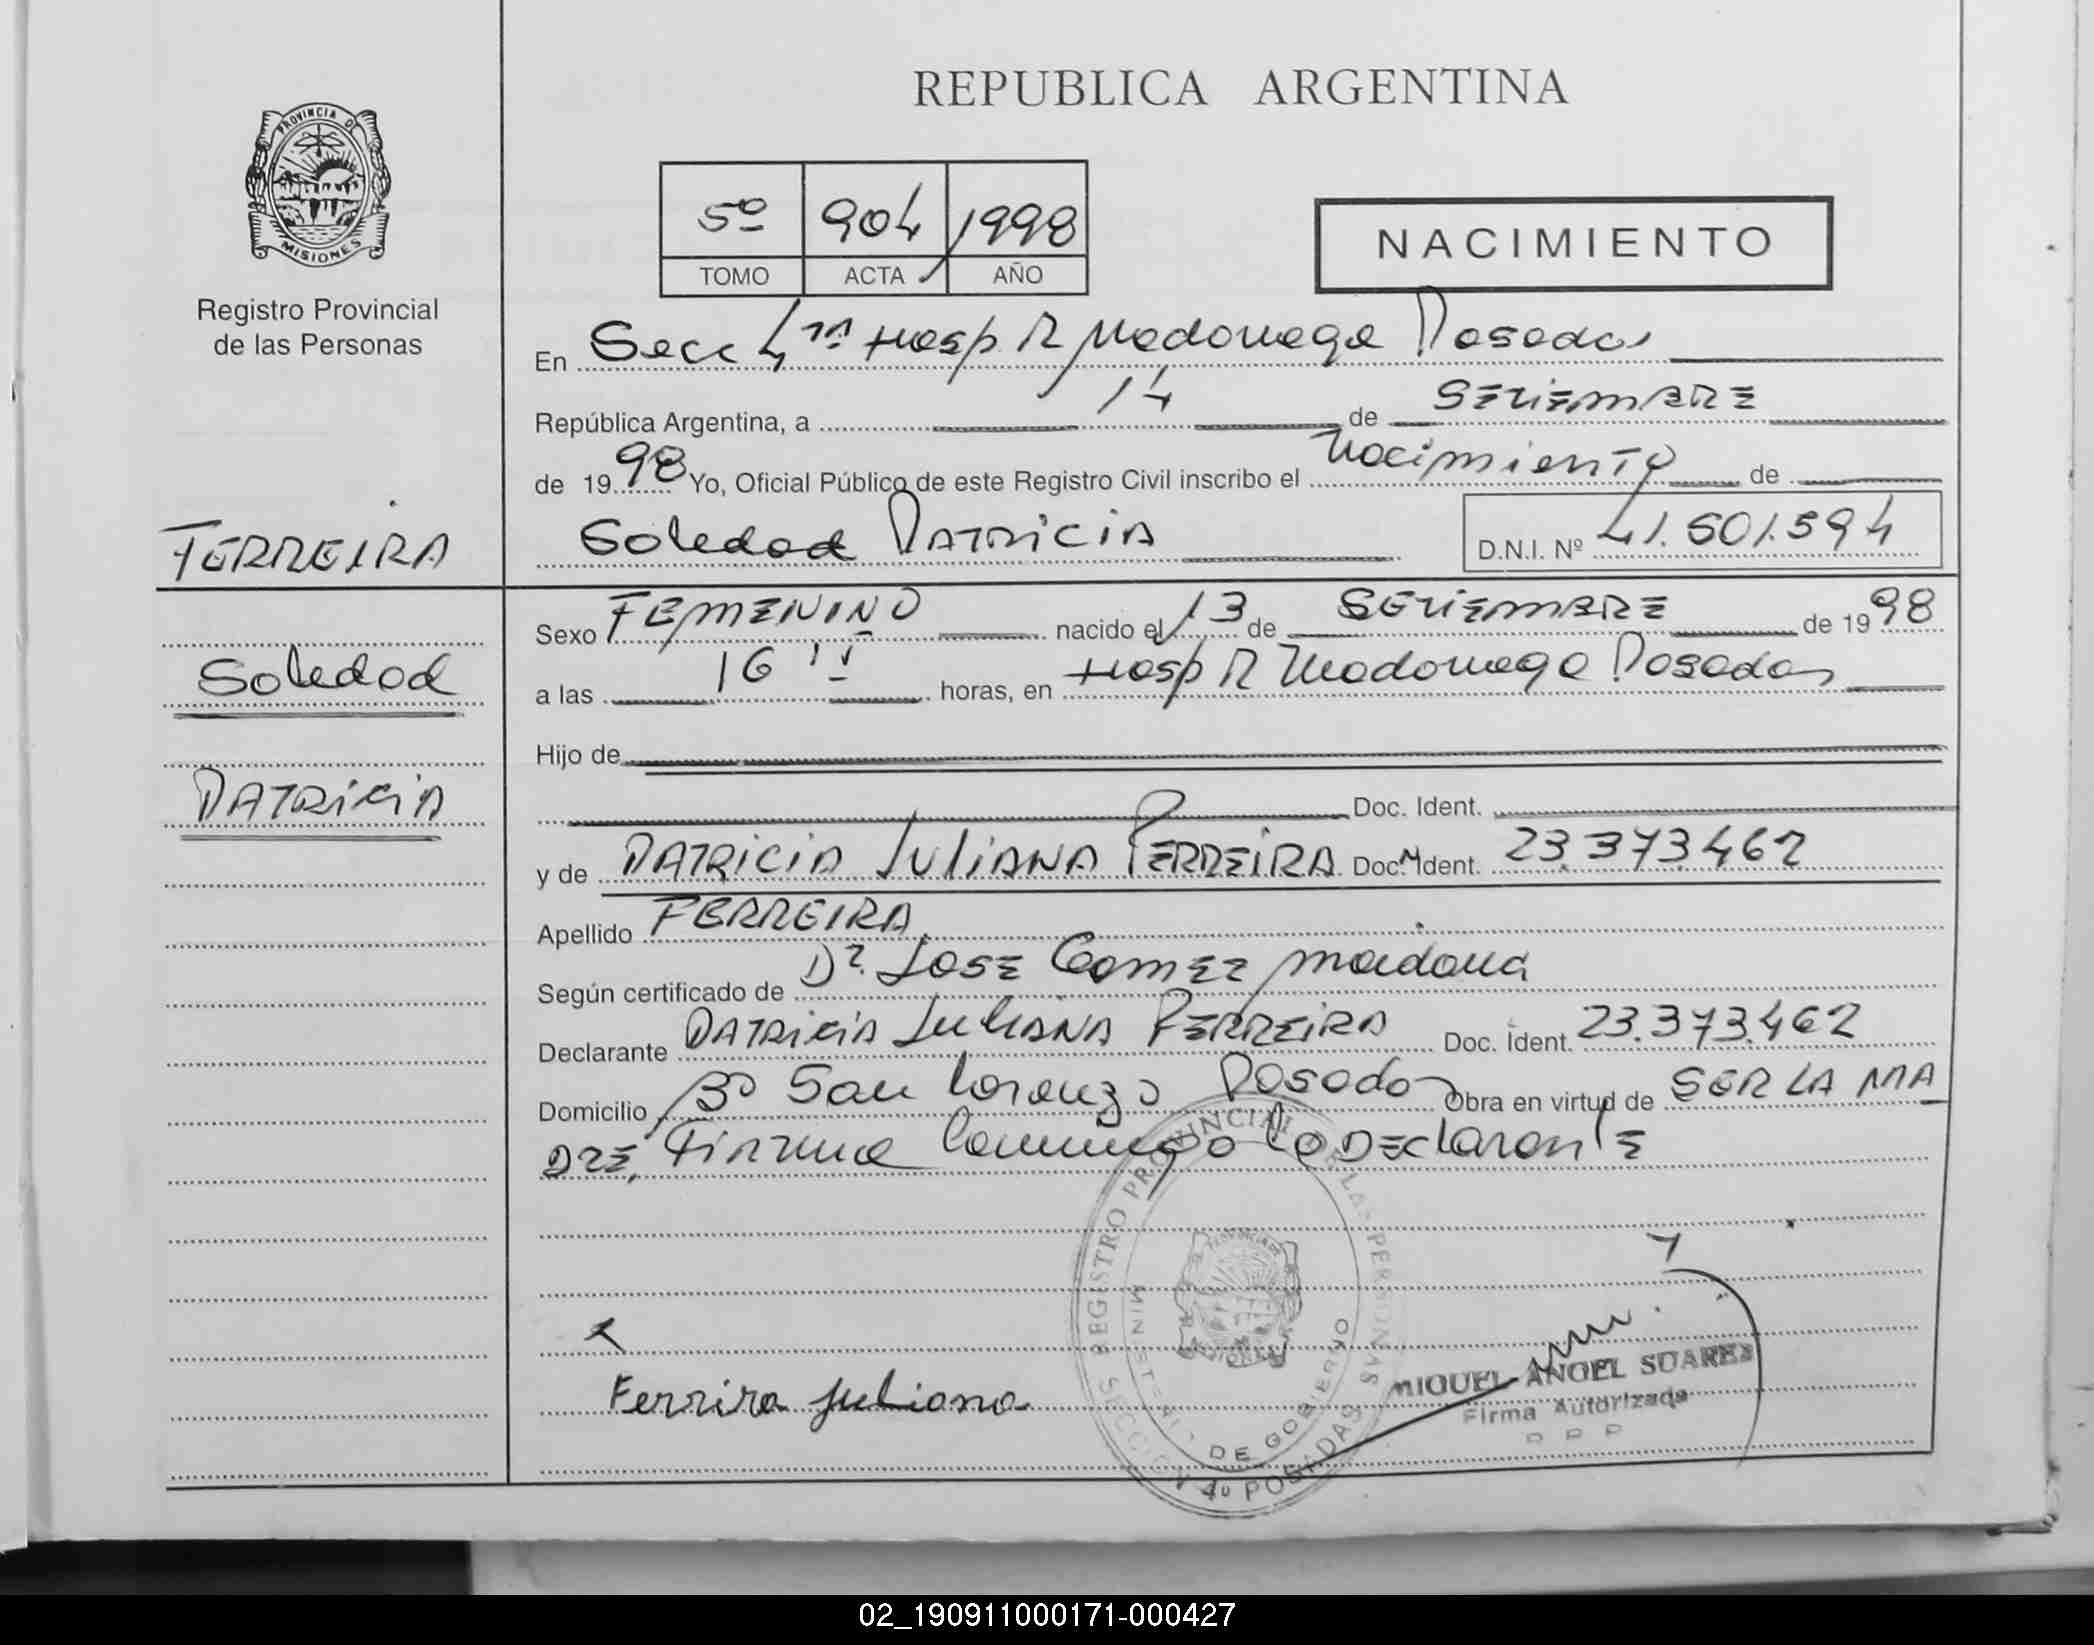 REPUBLICA ARGENTINA
PROVINCIA DE
MISIONES
Registro Provincial
de las Personas
5º 904 1998
TOMO ACTA AÑO
NACIMIENTO
En Secc 4ª Hosp R Madariaga Posadas
República Argentina, a 14 de SETIEMBRE
de 1998 Yo, Oficial Público de este Registro Civil inscribo el Nacimiento de
FERREIRA
Soledad PATRICIA D.N.I. Nº 41.501.594
Sexo FEMENINO nacido el 13 de SETIEMBRE de 1998
Soledad
a las 16 horas, en Hosp R Madariaga Posadas
Hijo de
PATRICIA
Doc. Ident.
y de PATRICIA JULIANA FERREIRA Doc. Ident. 23.373.462
Apellido FERREIRA
Según certificado de Dr. JOSE GOMEZ
Declarante PATRICIA JULIANA FERREIRA Doc. Ident. 23.373.462
Domicilio Bº San Lorenzo Posadas Obra en virtud de SER LA MA
DRE, Firma Conmigo la DEclaranTE
REGISTRO PROVINCIAL DE LAS PERSONAS
MINISTERIO DE GOBIERNO
SECCION 4º POSADAS
Ferrira Juliana
MIGUEL ANGEL SUAREZ
Firma Autorizada
02_190911000171-000427